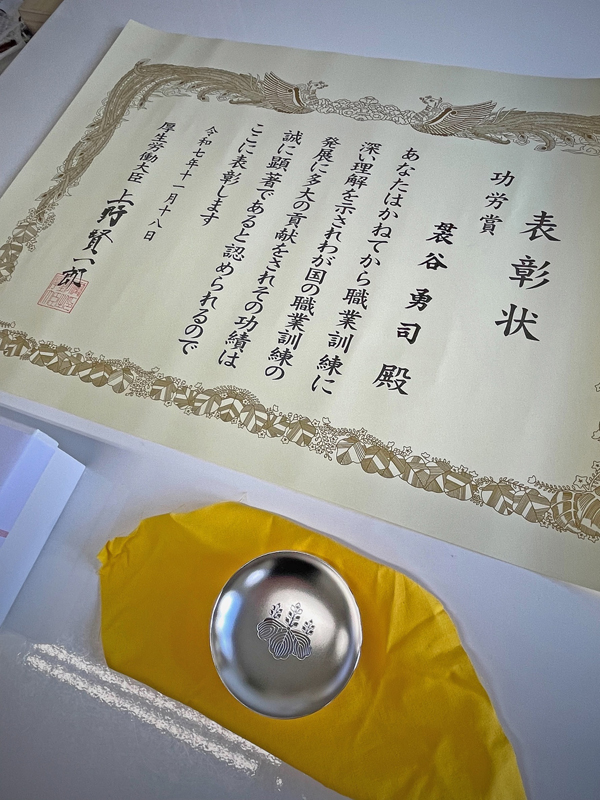 表彰状
功労賞
袰谷 勇司 殿
あなたはかねてから職業訓練に
深い理解を示されわが国の職業訓練の
発展に多大の貢献をされその功績は
誠に顕著であると認められるので
ここに表彰します
令和七年十一月十八日
厚生労働大臣 上野賢一郎